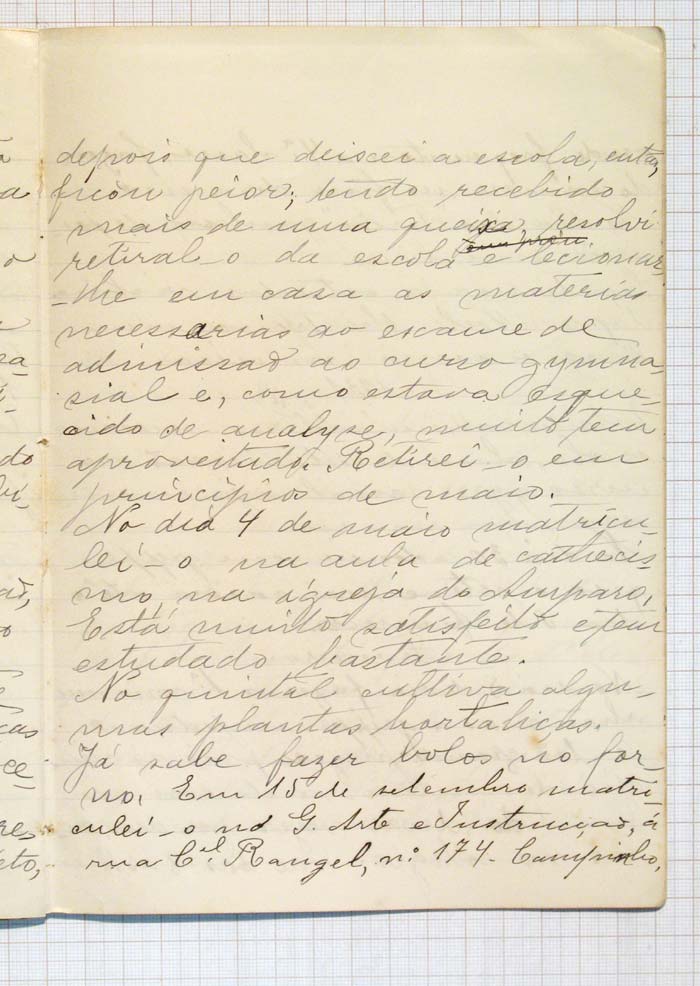 depois que deixei a escola, então,
ficou peior; tendo recebido
mais de uma queixa, resolvi
retiral-o da escola e lecionar-
-lhe em casa as materias
necessarias ao exame de
admissaõ ao curso gymna-
sial e, como estava esque-
cido de analyse, muito tem
aproveitado. Retirei-o em
principios de maio.
No dia 4 de maio matricu-
lei-o na aula de cathecis-
mo, na igreja do Amparo.
Está muito satisfeito e tem
estudado bastante.
No quintal cultiva algu-
mas plantas hortaliças.
Já sabe fazer bolos no for-
no. Em 15 de setembro matri-
culei-o no G. Arte e Instrucçaõ, á
rua Cel. Rangel, n.º 174 - Campinho,